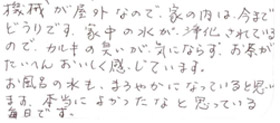 機械が屋外なので、家の内は、今まで
どうりです。家中の水が、浄化されている
ので、カルキの臭いが、気にならず、お茶が
たいへんおいしく感じています。
お風呂の水も、まろやかになっていると思い
ます。本当によかったなと思っている
毎日です。